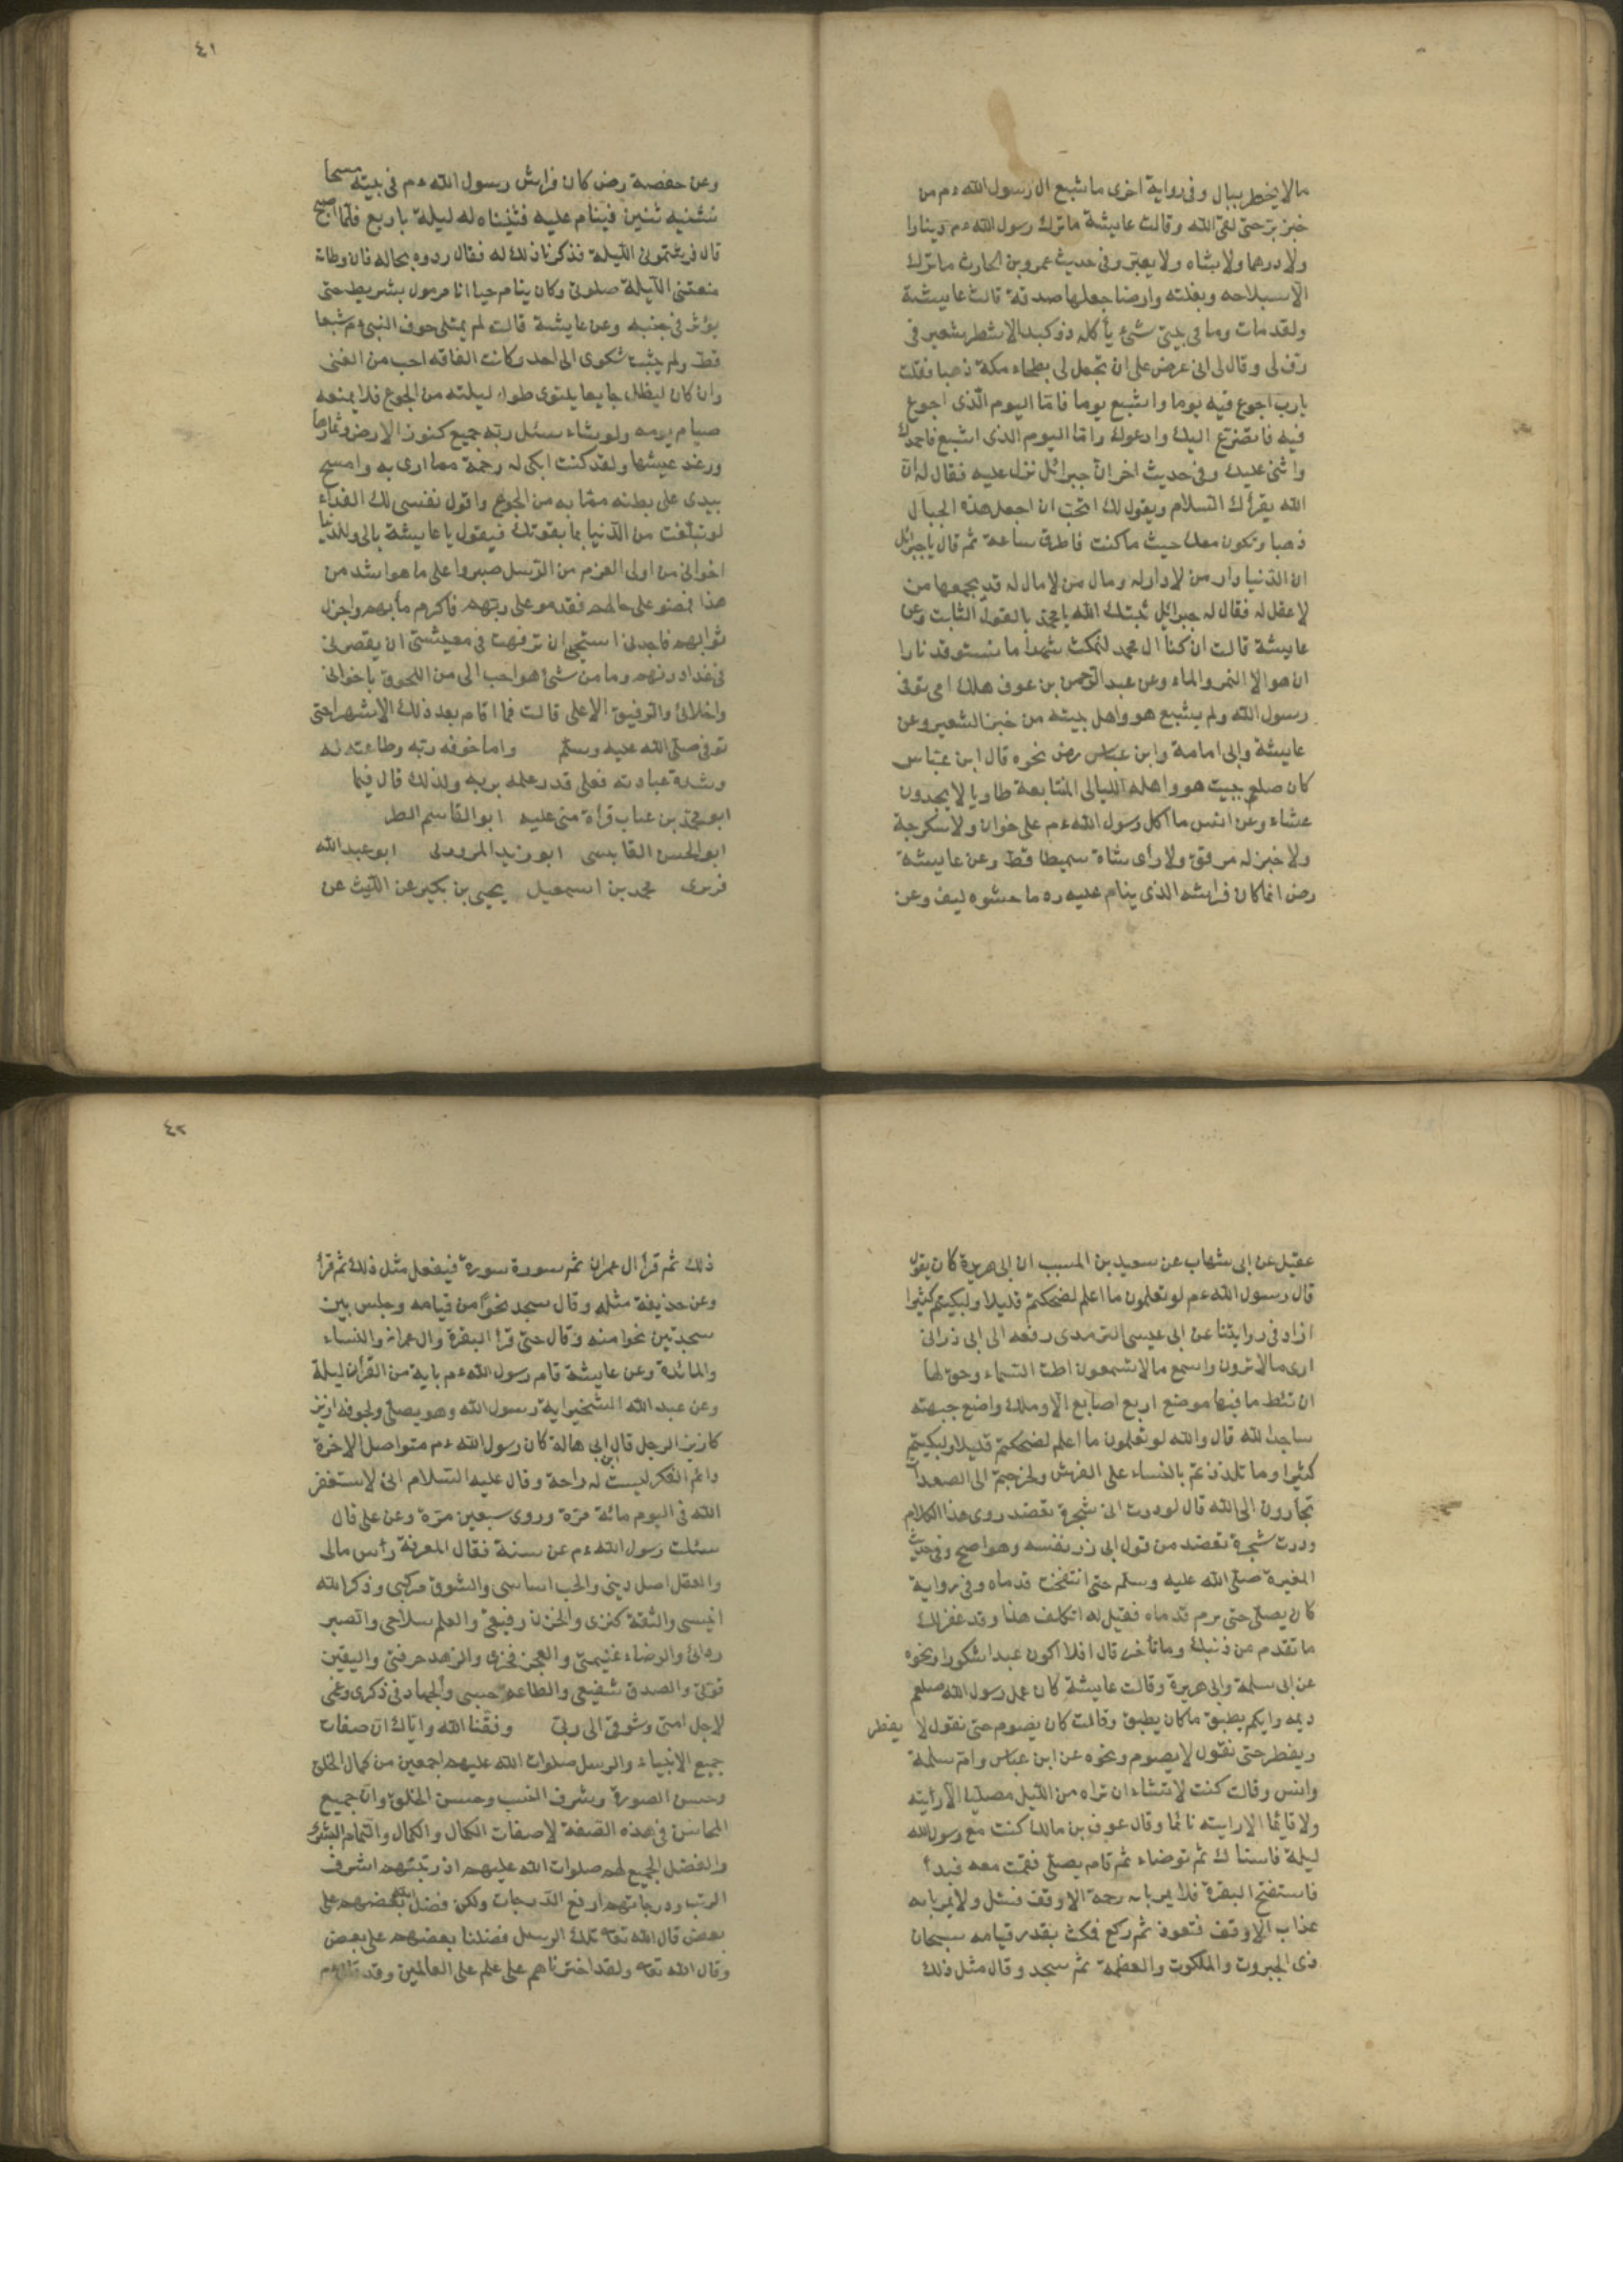 مالا يخطر ببال وفى رواية اخرى ما شبع ال رسول الله ءم من
خبز بر حتى لقى الله وقالت عايشة ما ترك رسول الله ءم دينارا
ولا درهما ولا شاه ولا بعير وفى حديث عمرو بن الحارث ما ترك
الا سلاحه وبغلته وارضا جعلها صدقة قالت عايشة
ولقد مات وما فى بيتى شئ يأكله ذو كبد الا شطر شعير فى
رف لى وقال لى انى عرض على ان تجعل لى بطحاء مكة ذهبا فقلت
يا رب اجوع فيه يوما واشبع يوما فاما اليوم الذى اجوع
فيه فاتضرع اليك وادعوك واما اليوم الذى اشبع فاحمدك
واثنى عليك وفى حديث اخر ان جبرائل نزل عليه فقال له ان
الله يقرأك السلام ويقول لك اتحب ان اجعل هذه الجبال
ذهبا وتكون معك حيث ما كنت فاطرق ساعة ثم قال يا جبرائل
ان الدنيا دار من لا دار له ومال من لا مال له قد يجمعها من
لا عقل له فقال له جبرائيل ثبتك الله يا محمد بالقول الثابت وعن
عايشة قالت ان كنا ال محمد لنمكث شهرا ما نستوقد نارا
ان هو الا التمر والماء وعن عبد الرحمن بن عوف هلك اى توفى
رسول الله ولم يشبع هو واهل بيته من خبز الشعير وعن
عايشة وابى امامة وابن عباس رض نحوه قال ابن عباس
كان صلعم يبيت هو واهله الليالى المتتابعة طاويا لا يجدون
عشاء وعن انس ما اكل رسول الله ءم على خوان ولا سكرجة
ولا خبز له مرقق ولا رأى شاة سميطا قط وعن عايشة
رض انما كان فراشه الذى ينام عليه ما حشوه ليف وعن
٤١
وعن حفصة رض كان فراش رسول الله ءم فى بيته مسحا
نثنيه ثنين فينام عليه فثنيناه له ليلة باربع فلما اصبح
قال فرشتمونى الليلة فذكرنا ذلك له فقال ردوه بحاله فان وطائه
منعتنى الليلة صلوتى وكان ينام حيانا مرمول بشريط حتى
يؤثر فى جنبه وعن عايشة قالت لم يمتلى جوف النبى ءم شبعا
قط ولم يثبت شكوى الى احد وكانت الفاقه احب من الغنى
وان كان ليظل جايعا يلتوى طول ليلته من الجوع فلا يمنعه
صيام يومه ولو شاء سئل ربه جميع كنوز الارض وثمارها
ورغد عيشها ولقد كنت ابكى له رحمة مما ارى به وامسح
بيدى على بطنه مما به من الجوع واقول نفسى لك الفداء
لو تبلغت من الدنيا بما يقوتك فيقول يا عايشة مالى وللدنيا
اخوانى من اولى العزم من الرسل صبروا على ما هو اشد من
هذا فمضو على حالهم فقدمو على ربهم فاكرم مأبهم واجزل
ثوابهم فاجدنى استحيى ان ترفهت فى معيشتى ان يقصر بى
فى غدا دونهم وما من شئ هو احب الى من اللحوق باخوانى
واخلائى والرفيق الاعلى قالت فما اقام بعد ذلك الا شهرا حتى
توفى صلى الله عليه وسلم واما خوفه ربه وطاعته له
وشدة عبادته فعلى قدر علمه بربه ولذلك قال فيما
ابو محمد بن عباب قرأة منى عليه ابو القاسم الطر
ابو الحسن القابسى ابو زيد المروزى ابو عبد الله
فربرى محمد بن اسمعيل يحيى بن بكير عن الليث عن
عقيل عن ابى شهاب عن سعيد بن المسيب ان ابى هريرة كان يقول
قال رسول الله ءم لو تعلمون ما اعلم لضحكتم قليلا ولبكيتم كثيرا
ازاد فى روايتنا عن ابى عيسى الترمدى رفعه الى ابى ذر انى
ارى مالا ترون واسمع مالا تسمعون اطت السماء وحق لها
ان تئط ما فيها موضع اربع اصابع الا وملك واضع جبهته
ساجدا لله قال والله لو تعلمون ما اعلم لضحكتم قليلا ولبكيتم
كثيرا وما تلذذتم بالنساء على الفرش ولخرجتم الى الصعدات
تجارون الى الله قال لوددت انى شجرة تعضد روى هذا الكلام
وددت شجرة تعضد من قول ابى ذر نفسه وهو اصح وفى حديث
المغيرة صلى الله عليه وسلم حتى انتفخت قدماه وفى رواية
كان يصلى حتى يرم قدماه فقيل له اتكلف هذا وقد غفر لك
ما تقدم من ذنبك وما تأخر قال افلا اكون عبدا شكورا ونحوه
عن ابى سلمة وابى هريرة وقالت عايشة كان عمل رسول الله صلعم
ديمه وايكم يطيق ما كان يطيق وقالت كان يصوم حتى نقول لا يفطر
ويفطر حتى نقول لا يصوم ونحوه عن ابن عباس وام سلمة
وانس وقالت كنت لا تشاء ان تراه من الليل مصليا الا رأيته
ولا قايما الا رايته نائما وقال عوف بن مالك كنت مع رسول الله
ليلة فاستاك ثم توضاء ثم قام يصلى فقمت معه فبدأ
فاستفتح البقرة فلا يمر باية رحمة الا وقف فسئل ولا يمر باية
عذاب الا وقف فتعوذ ثم ركع فمكث بقدر قيامه سبحان
ذى الجبروت والملكوت والعظمة ثم سجد وقال مثل ذلك
٤٢
ذلك ثم قرأ ال عمران ثم سورة سورة فيفعل مثل ذلك ثم قرأ
وعن حذيفة مثله وقال سجد نحوا من قيامه وجلس بين
سجدتين نحوا منه وقال حتى قرا البقرة وال عمران والنساء
والمائدة وعن عايشة قام رسول الله ءم باية من القرأن ليلة
وعن عبد الله الشخير اية رسول الله وهو يصلى ولجوفه ازيز
كازيز الرجل قال ابن ابى هالة كان رسول الله ءم متواصل الاخرة
دائم الفكر ليست له راحة وقال عليه السلام انى لاستغفر
الله فى اليوم مائة مرة وروى سبعين مرة وعن على قال
سئلت رسول الله ءم عن سنة فقال المعرفة رأس مالى
والعقل اصل دينى والحب اساسى والشوق مركبى وذكر الله
انيسى والثقة كنزى والحزن رفيقى والعلم سلاحى والصبر
ردائى والرضاء غنيمتى والعجز فخرى والزهد حرفتى واليقين
قوتى والصدق شفيعى والطاعة حبسى والجهاد فى ذكرى وغمى
لاجل امتى وشوقى الى ربى وفقنا الله واياك ان صفات
جميع الانبياء والرسل صلوات الله عليهم اجمعين من كمال الخلق
وحسن الصورة وشرف النسب وحسن الخلق وان جميع
المحاسن فى هذه الصفة لاصفات الكمال والكمال والتمام البشرى
والفضل الجميع لهم صلوات الله عليهم اذ رتبتهم اشرف
الرتب ودرجاتهم ارفع الدرجات ولكن فضل الله بعضهم على
بعض قال الله تعه تلك الرسل فضلنا بعضهم على بعض
وقال الله تعه ولقد اخترناهم على علم على العالمين وقد قال ءم